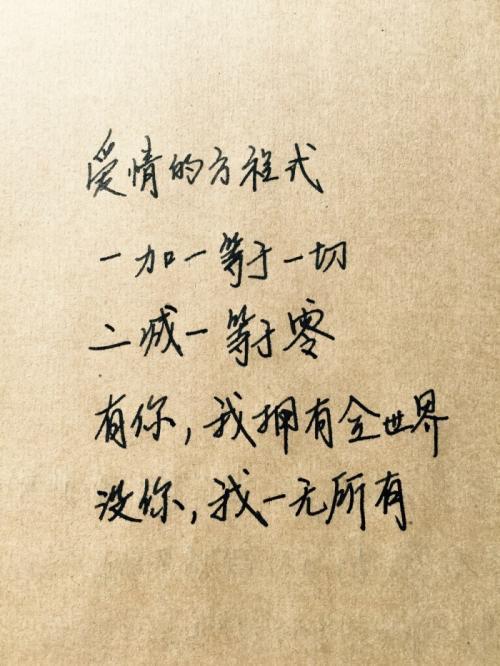 爱情的方程式
一加一等于一切
二减一等于零
有你，我拥有全世界
没你，我一无所有